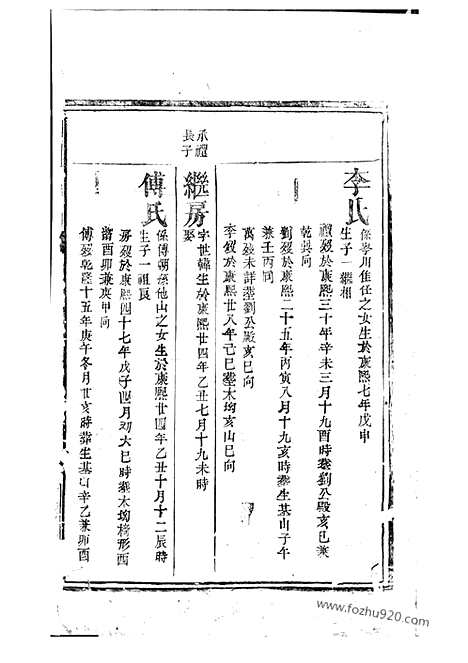 李氏
係峯川佳任之女生於康熙七年戊申
生子一繼相
禮歿於康熙三十年辛未三月十九酉時塟劉公殿亥巳兼
乾巽向
劉歿於康熙二十五年丙寅八月十九亥時塟生基山子午
兼壬丙向
萬歿未詳塟劉公殿亥巳向
李歿於康熙廿八年己巳塟木坳亥山巳向
承禮
長子
繼房
字世韓生於康熙廿四年乙丑七月十九未時
娶
傅氏
係傅朝孫他山之女生於康熙廿四年乙丑十月十二辰時
生子一祖良
房歿於康熙四十七年戊子四月初六巳時塟木坳椅形酉
酉卯兼庚甲向
傅歿乾隆十五年庚午冬月廿亥時塟生基山辛乙兼卯酉
www.fozhu920.com